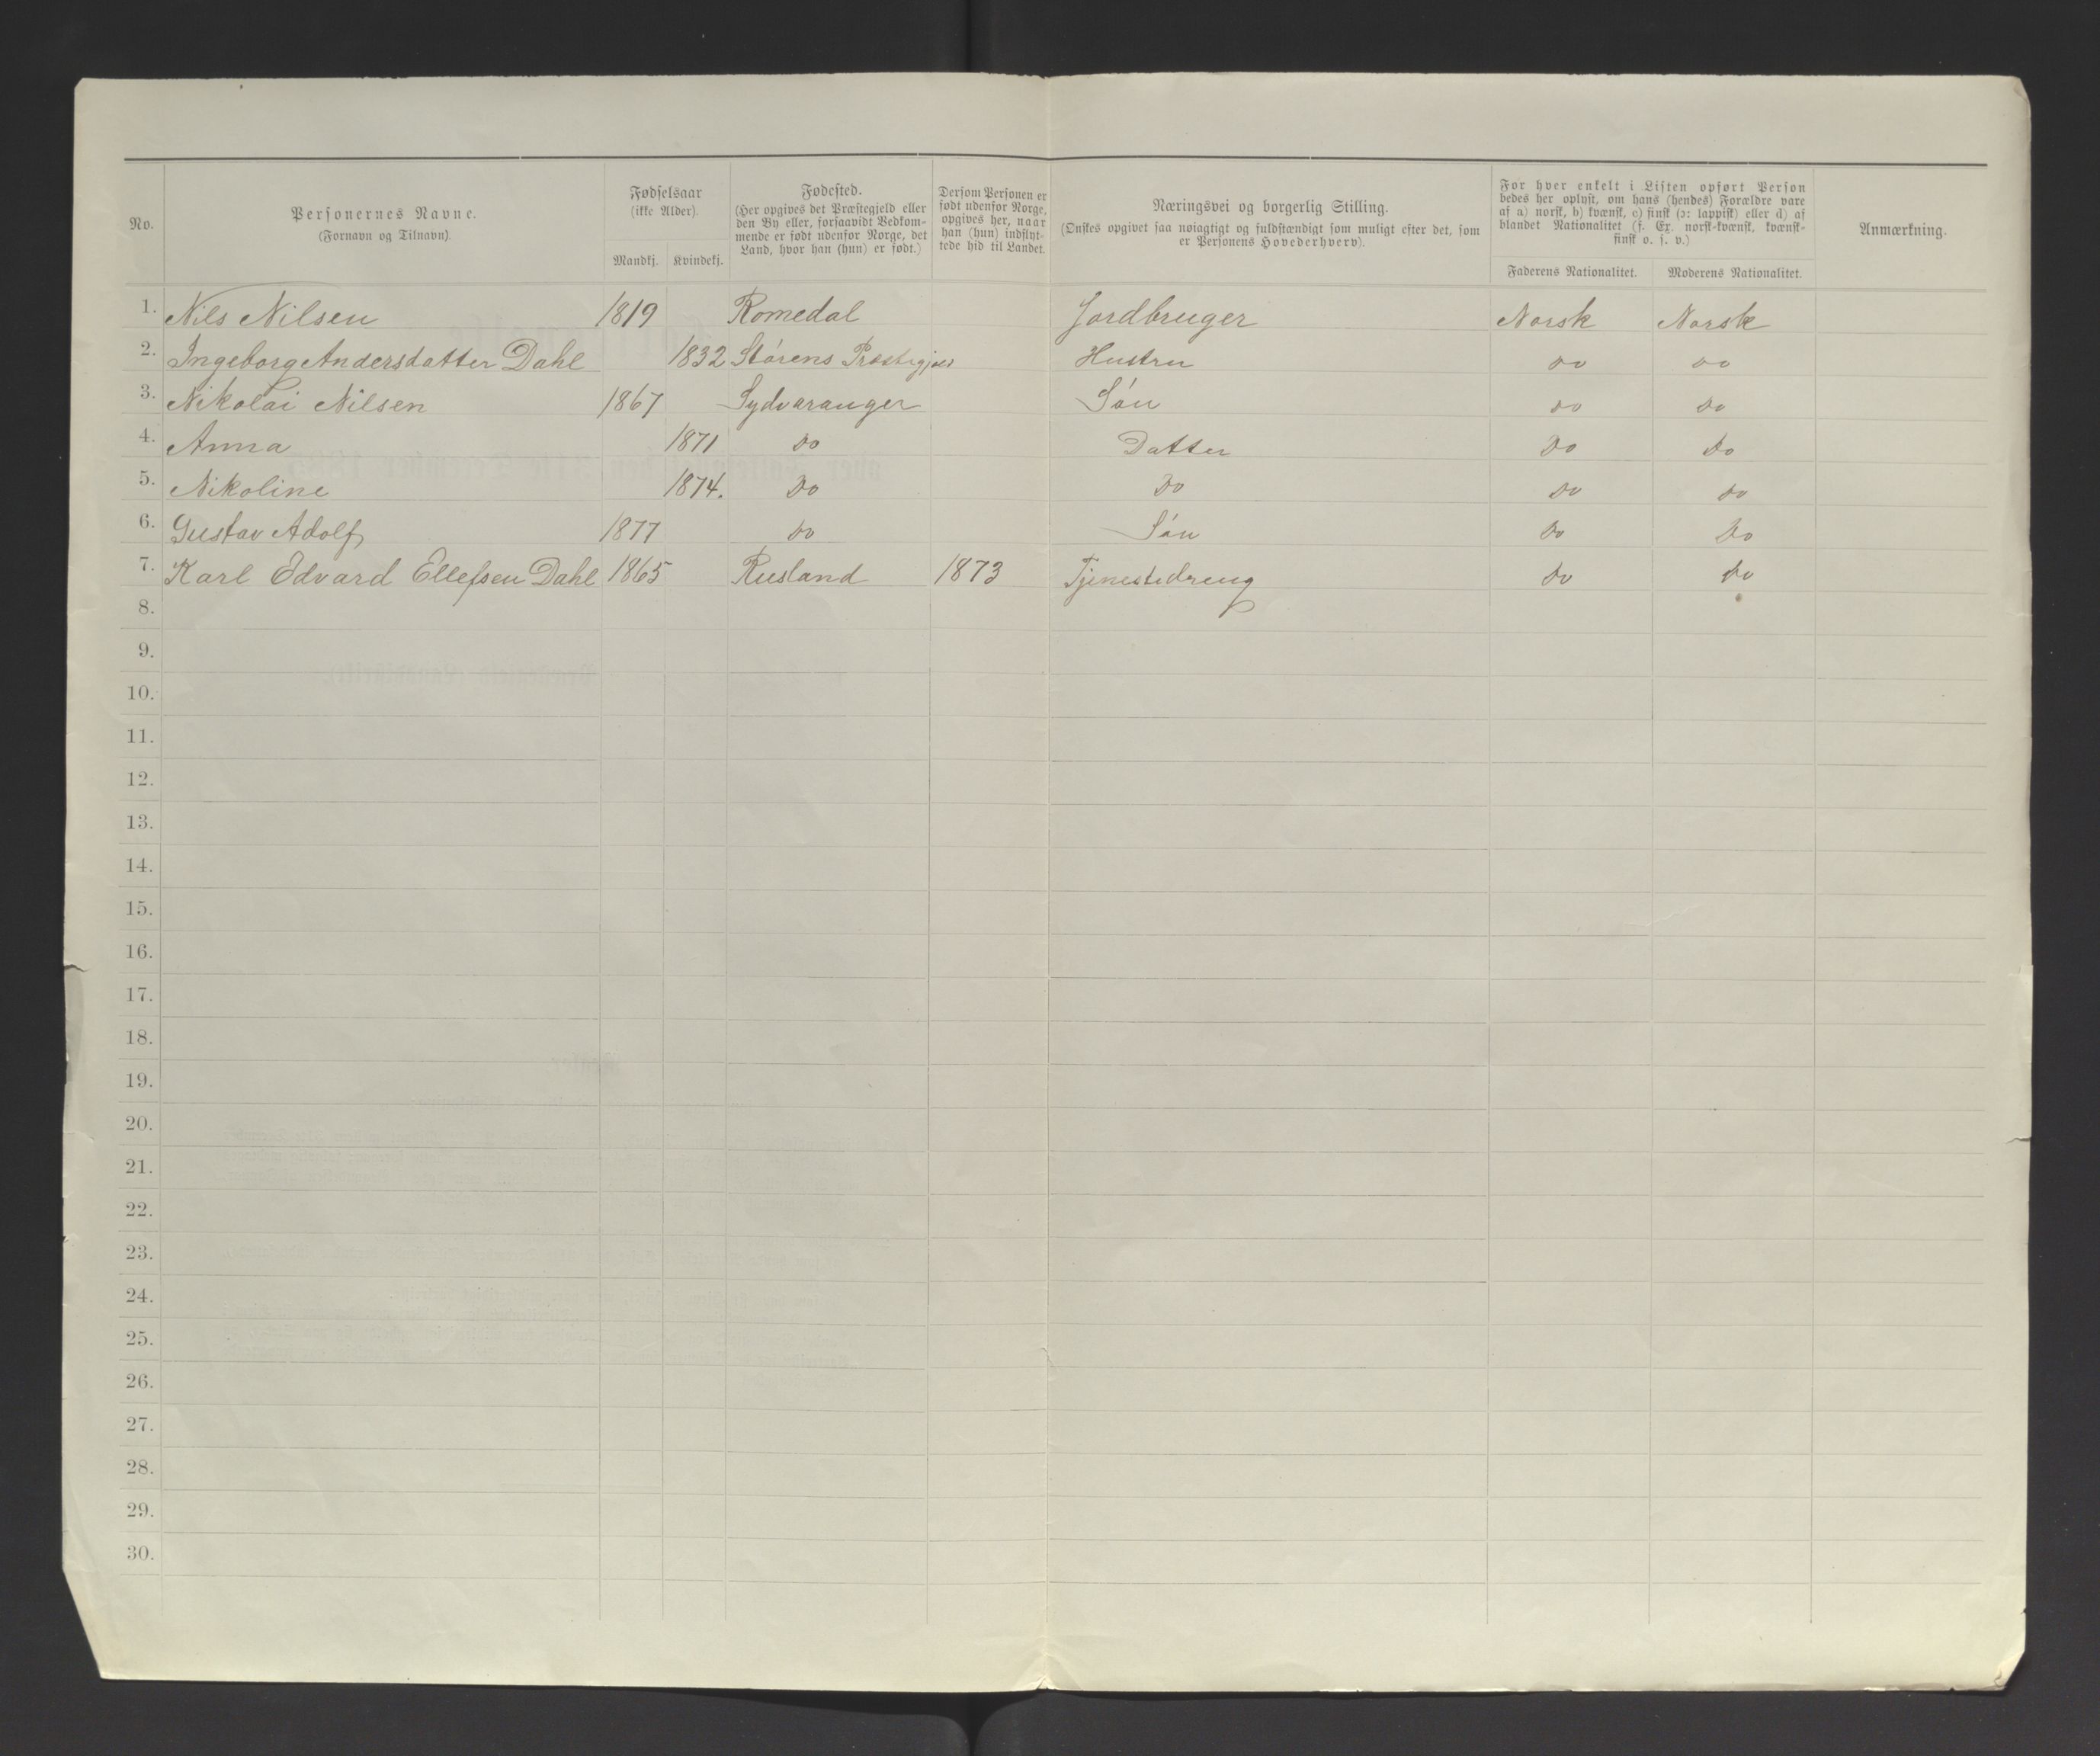 No.
Personernes Navne.
(Fornavn og Tilnavn).
Fødselsaar
(ikke Alder).
Mandkj. Kvindekj.
Fødested.
(Her opgives det Præstegjeld eller
den By eller, forsaavidt Vedkom-
mende er født udenfor Norge, det
Land, hvor han (hun) er født.)
Dersom Personen er
født udenfor Norge,
opgives her, naar
han (hun) indflyt-
tede hid til Landet.
Næringsvei og borgerlig Stilling.
(Ønskes opgivet saa nøiagtigt og fuldstændigt som muligt efter det, som
er Personens Hovederhverv).
For hver enkelt i Listen opført Person
bedes her oplyst, om hans (hendes) Forældre vare
af a) norsk, b) kvænsk, c) finsk (ɔ: lappisk) eller d) af
blandet Nationalitet (f. Ex. norsk-kvænsk, kvænsk-
finsk o. s. v.)
Faderens Nationalitet. Moderens Nationalitet.
Anmærkning.
1. Nils Nilsen 1819 Romedal Jordbruger Norsk Norsk
2. Ingeborg Andersdatter Dahl 1832 Størens Præstegjæld Hustru do do
3. Nikolai Nilsen 1867 Sydvaranger Søn do do
4. Anna 1871 do Datter Do Do
5. Nikoline 1874. Do Do do do
6. Gustav Adolf 1877 do Søn Do Do
7. Karl Edvard Ellefsen Dahl 1865 Rusland 1873 Tjenestedreng do do
8.
9.
10.
11.
12.
13.
14.
15.
16.
17.
18.
19.
20.
21.
22.
23.
24.
25.
26.
27.
28.
29.
30.